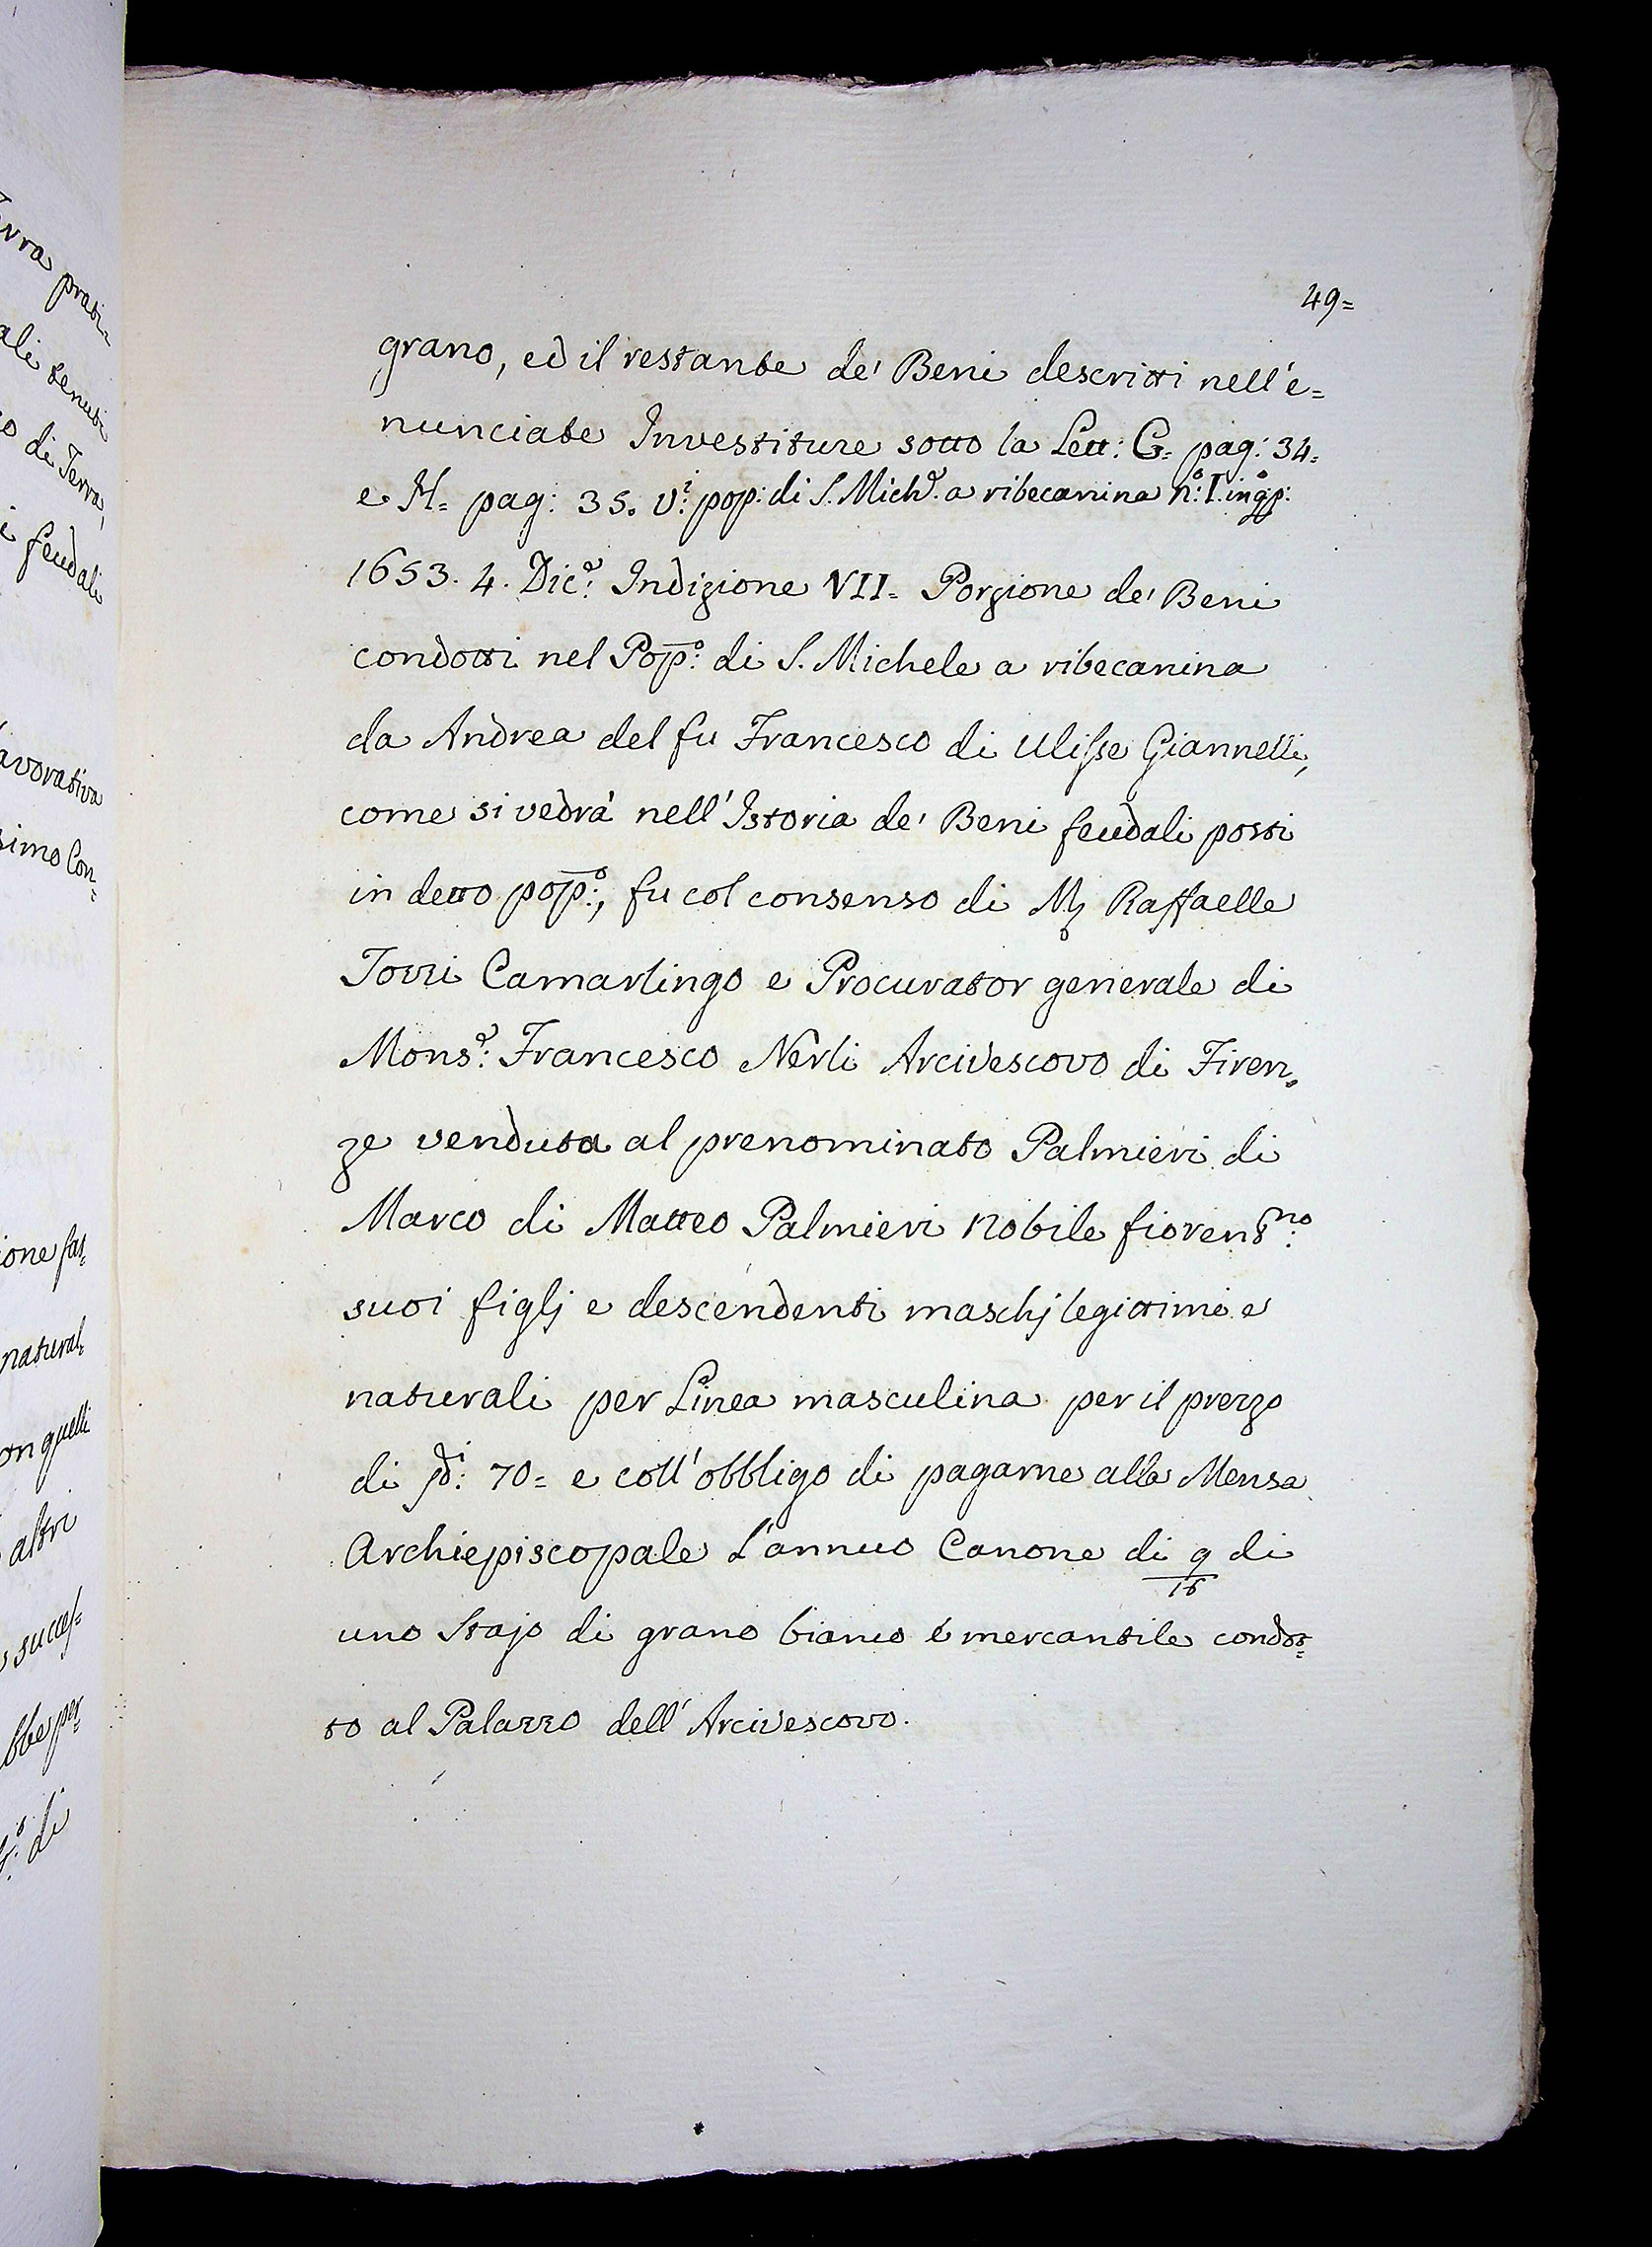 49=
grano, ed il restante de' Beni descritti nell'e=
nunciate Investiture sotto la Lett: G= pag: 34=
e H= pag: 35. v:i pop: di S. Mich:e a ribecanina n:o I. in
1653. 4. Dic:e Indizione VII= Porzione de' Beni
condotti nel Pop:o di S. Michele a ribecanina
da Andrea del fu Francesco di Ulisse Giannelli,
come si vedrà nell'Istoria de' Beni feudali posti
in detto pop:o, fu col consenso di Raffaelle
Torri Camarlingo e Procurator generale di
Mons:e Francesco Nerli Arcivescovo di Firen=
ze venduta al prenominato Palmieri di
Marco di Matteo Palmieri Nobile fiorent:no
suoi figlj e descendenti maschj legittimi e
naturali per Linea masculina per il prezzo
di 70= e coll'obbligo di pagarne alla Mensa
Archiepiscopale l'annuo Canone di 9/16 di
uno Stajo di grano bianco é mercantile condot=
to al Palazzo dell'Arcivescovo.
prati=
ali tenuti
di Terra,
i feudali
avorativa
simo Con=
ione fat=
natural=
on quelli
altri
succes=
bbe per=
di